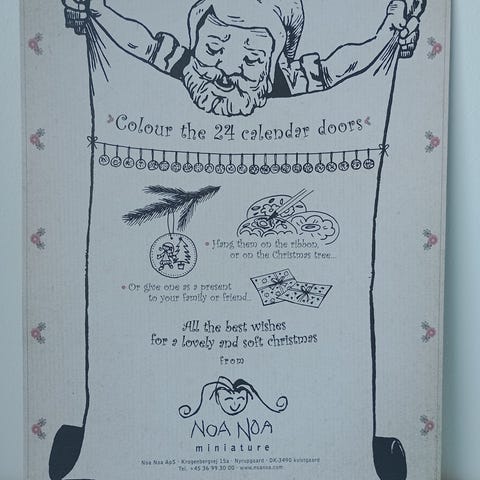 Colour the 24 calendar doors
Hang them on the ribbon,
or on the Christmas tree...
Or give one as a present
to your family or friend...
All the best wishes
for a lovely and soft christmas
from
NOA NOA
miniature
Noa Noa ApS · Krogenbergvej 15a · Nyrupgaard · DK-3490 kvistgaard
Tel. +45 36 99 30 00 · www.noanoa.com